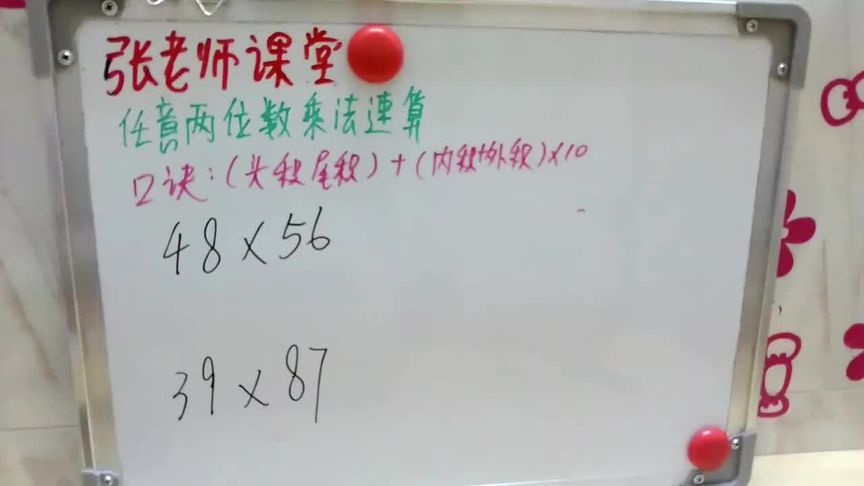 张老师课堂
任意两位数乘法速算
口诀:(头积尾积)+(内积+外积)×10
48×56
39×87